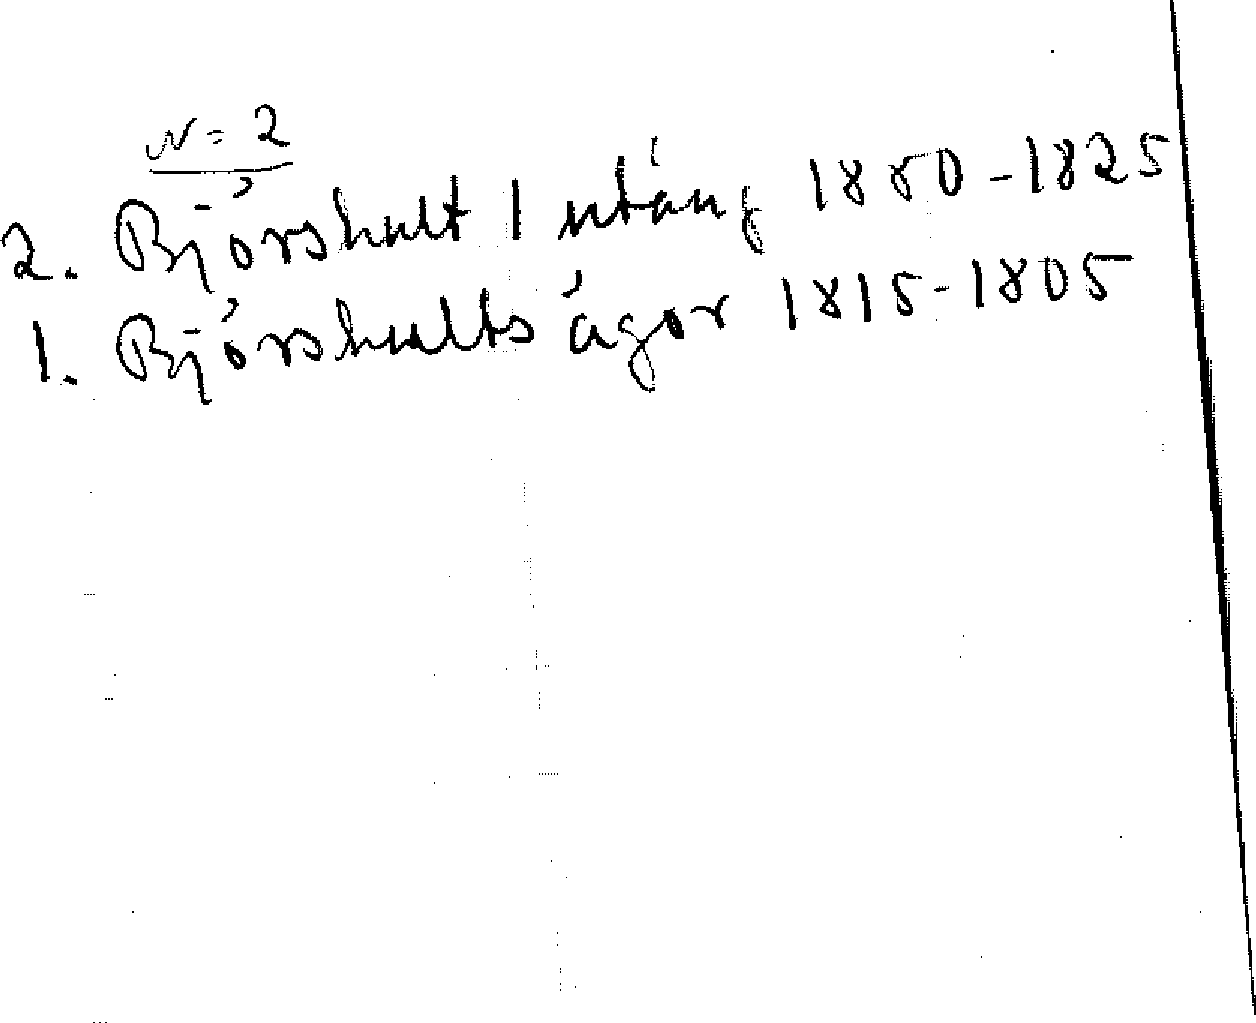 N = 2
2. Björshult 1 utäng 1880-1825
1. Björshults ägor 1815-1805